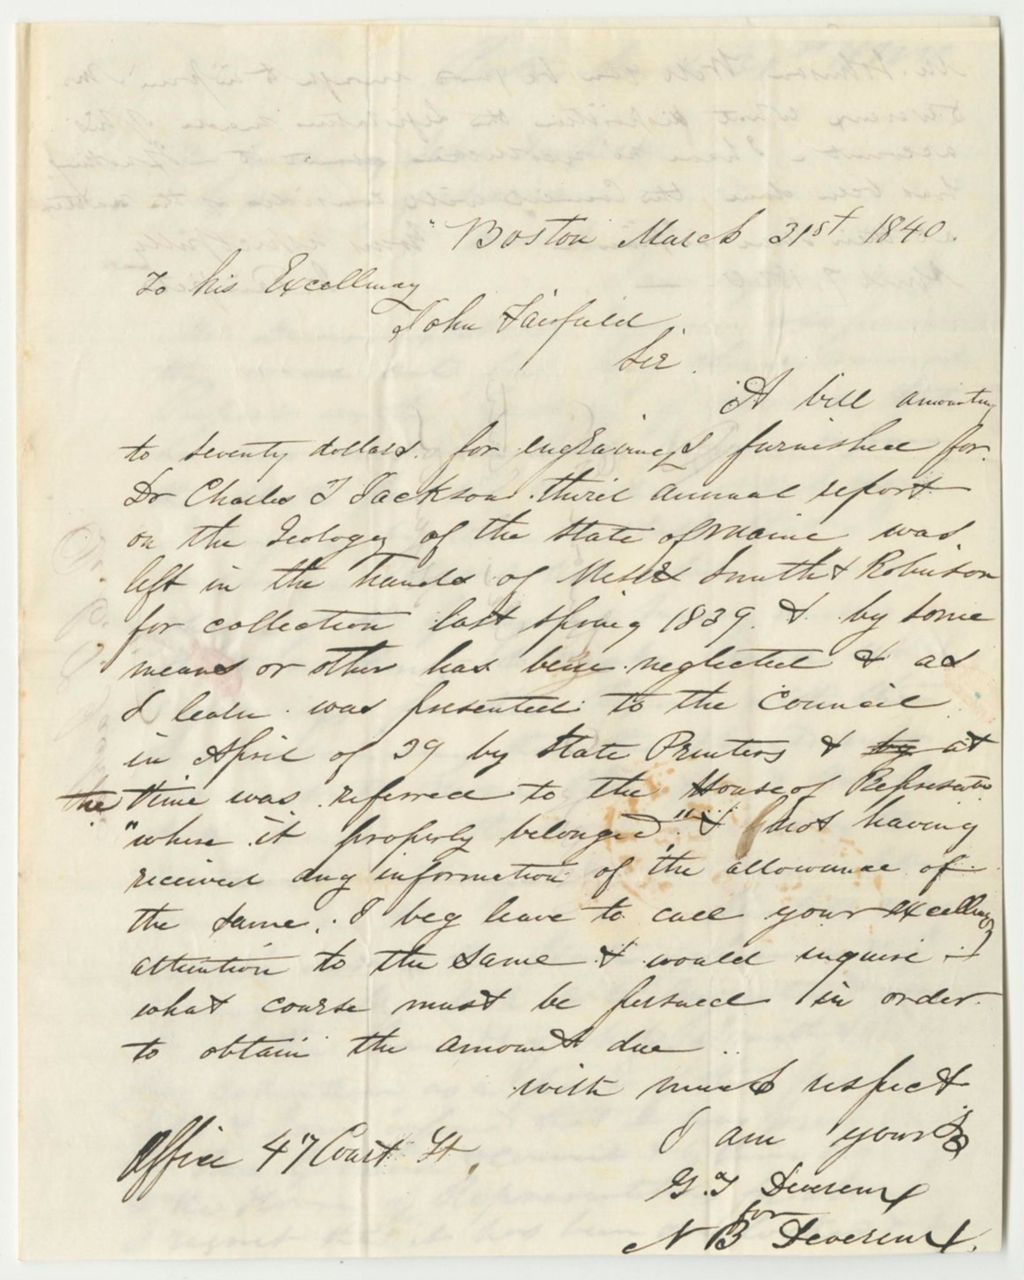 Boston March 31st 1840.
To his Excellency
John Fairfield
Sir.
A bill amounting
to seventy dollars. for engravings furnished for
Dr Charles T Jackson third annual report
on the Geology of the State of Maine was
left in the hands of Messrs Smith & Robinson
for collection last spring 1839. & by some
means or other has been neglected & as
I learn was presented to the Council
in April of 29 by State Printers & by at
the time was referred to the House of Represents
"where it properly belonged" & not having
received any information of the allowance of
the same. I beg leave to call your excellency
attention to the same & would inquire
what course must be persued in order
to obtain the amount due
with much respect
I am yours
Office 47 Court St.
G. T Devereux
for
N B Devereux.